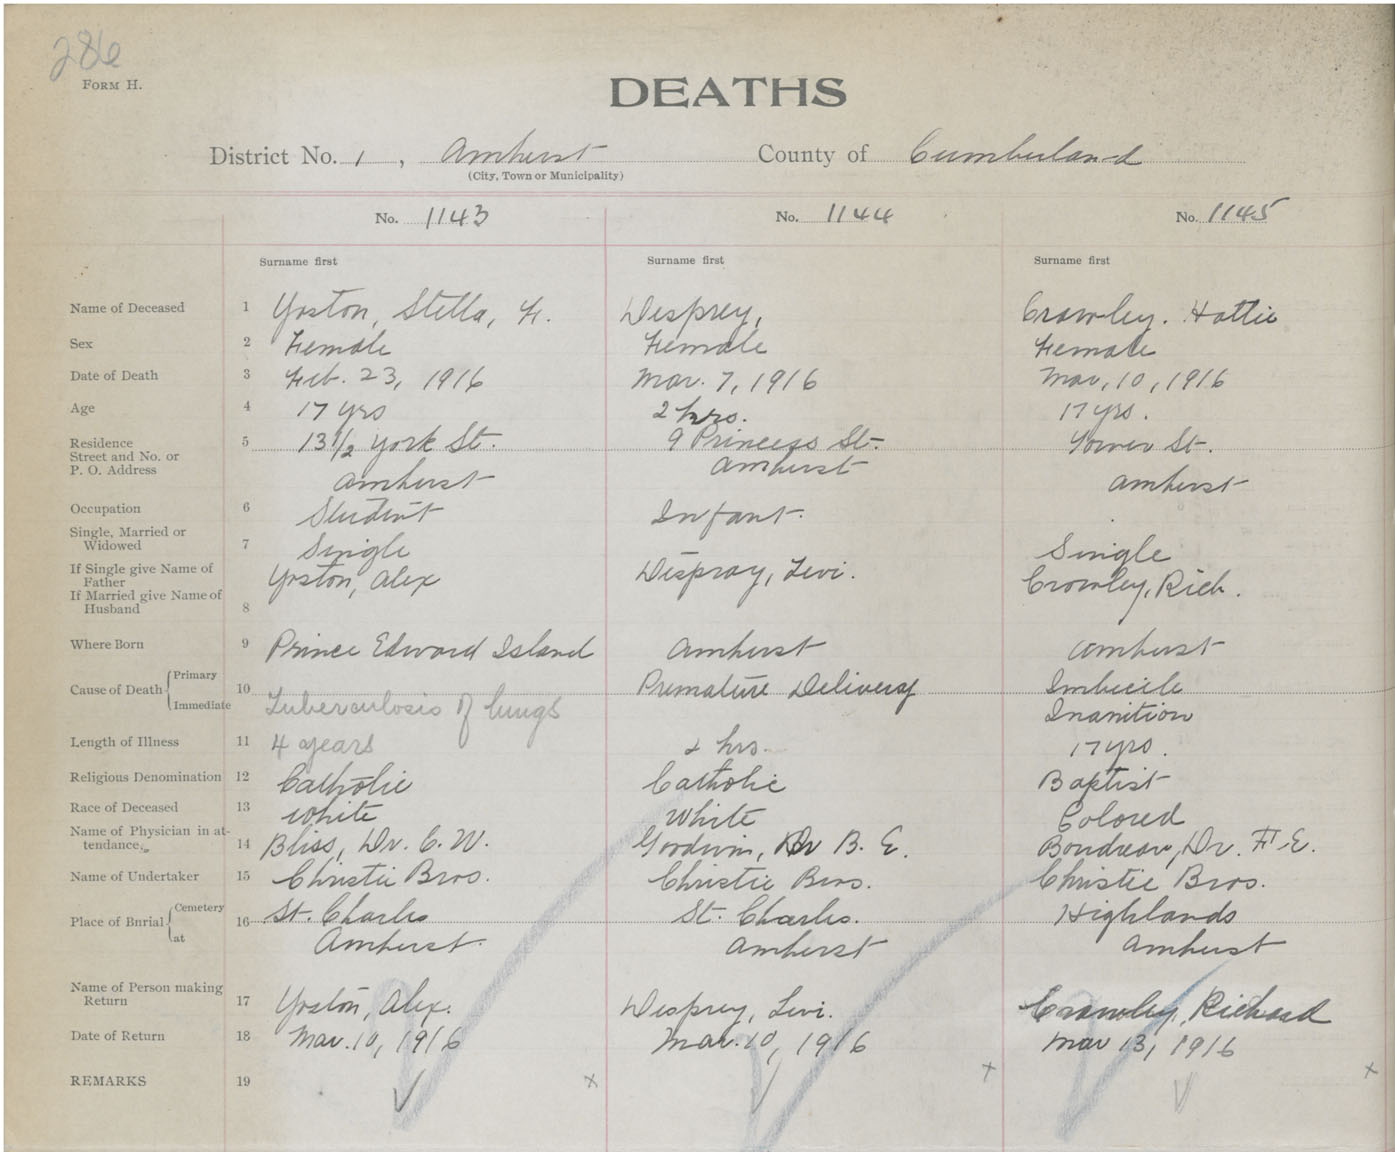 286
FORM H.
DEATHS
District No. 1, Amherst County of Cumberland
(City, Town or Municipality)
No. 1143 No. 1144 No. 1145
Surname first Surname first Surname first
Name of Deceased 1 Yoston, Stella, F. Desprey, Crawley. Hattie
Sex 2 Female Female Female
Date of Death 3 Feb. 23, 1916 Mar. 7, 1916 Mar, 10, 1916
Age 4 17 yrs 2 hrs. 17 yrs.
Residence 5 13 1/2 York St. 9 Princess St. St.
Street and No. or
P. O. Address Amherst Amherst Amherst
Occupation 6 Student Infant.
Single, Married or
Widowed 7 Single Single
If Single give Name of
Father Yoston, Alex Despray, Levi. Crowley, Rich.
If Married give Name of
Husband 8
Where Born 9 Prince Edward Island Amherst Amherst
Cause of Death Primary 10 Premature Delivery Imbicile
Immediate Tuberculosis of lungs Inanition
Length of Illness 11 4 years 2 hrs. 17 yrs.
Religious Denomination 12 Catholic Catholic Baptist
Race of Deceased 13 White White Colored
Name of Physician in at-
tendance, 14 Bliss, Dr. C. W. Goodwin, Dr B. E. Boudreau, Dr. F. E.
Name of Undertaker 15 Christie Bros. Christie Bros. Christie Bros.
Place of Burial Cemetery 16 St. Charles St. Charles. Highlands
at Amherst. Amherst Amherst
Name of Person making
Return 17 Yoston, Alex. Desprey, Levi. Crawley, Richard
Date of Return 18 Mar. 10, 1916 Mar. 10, 1916 Mar 13, 1916
REMARKS 19 x x x